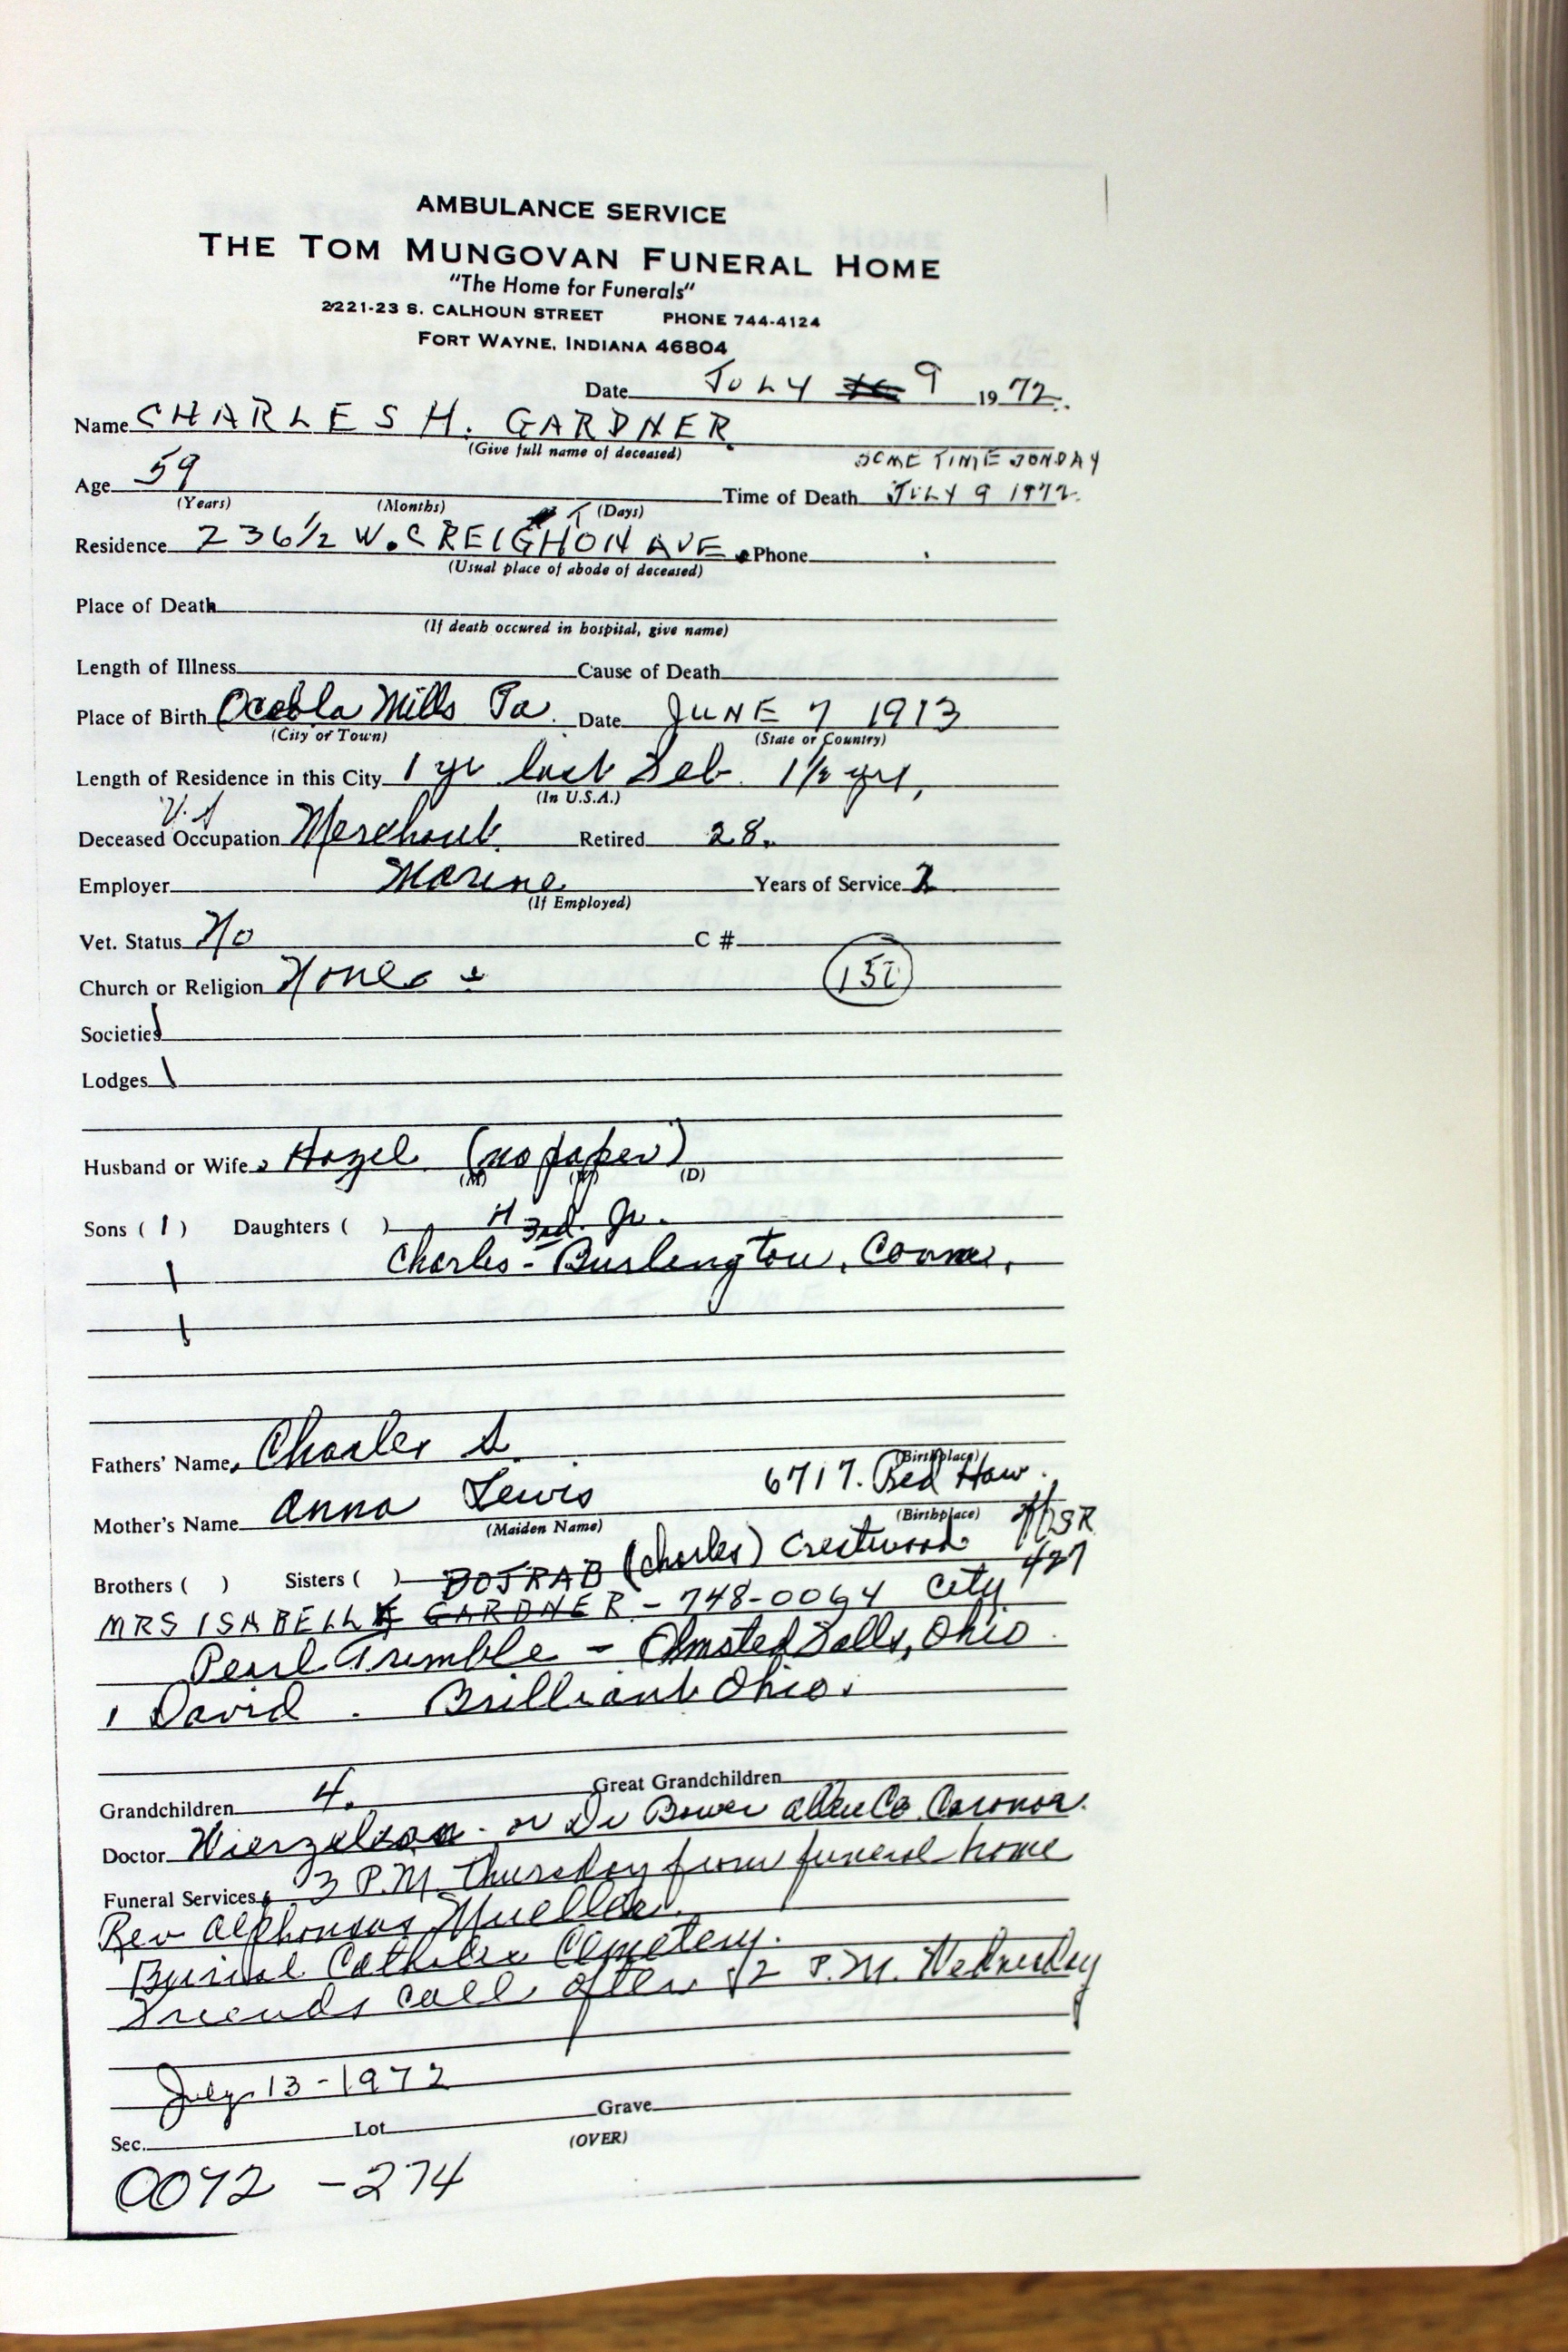 AMBULANCE SERVICE
THE TOM MUNGOVAN FUNERAL HOME
"The Home for Funerals"
2221-23 S. CALHOUN STREET PHONE 744-4124
FORT WAYNE, INDIANA 46804
Date JULY 9 1972.
Name CHARLES H. GARDNER
(Give full name of deceased)
SOME TIME SONDAY
Age 59 Time of Death JULY 9 1972
(Years) (Months) (Days)
Residence 236 1/2 W. CREIGHTON AVE. Phone
(Usual place of abode of deceased)
Place of Death
(If death occured in hospital, give name)
Length of Illness Cause of Death
Place of Birth Mills Pa. Date JUNE 7 1913
(City or Town) (State or Country)
Length of Residence in this City 1 yr last Feb. 1 1/2 yrs,
(In U.S.A.)
Deceased Occupation Merchant Retired 28.
Employer Marine Years of Service 2
(If Employed)
Vet. Status No C #
Church or Religion None
150
Societies
Lodges
Husband or Wife Hazel (no paper)
(M) (W) (D)
Sons ( 1 ) Daughters ( ) H 3rd. Jr.
Charles - Burlington, Conn,
Fathers' Name Charles S.
(Birthplace)
6717. Red Haw.
Mother's Name Anna Lewis
(Maiden Name) (Birthplace)
Brothers ( ) Sisters ( ) BOJRAB (Charles) Crestwood
427
MRS ISABELLE GARDNER - 748-0064 City
Pearl Trimble - Olmsted Falls, Ohio.
1 David. Brilliant Ohio.
Grandchildren 4. Great Grandchildren
Doctor or Dr Bower Allen Co. Coronor.
Funeral Services 3 P.M. Thursday from funeral home
Rev Alphonsus Mueller.
Burial Catholic Cemetery.
Friends call after 2 P.M. Wednesday
July 13-1972
Sec. Lot Grave
(OVER)
0072 -274